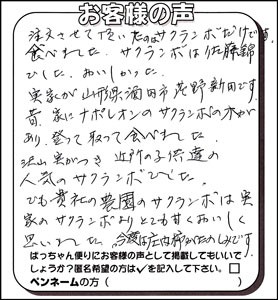 お客様の声
注文させて頂いたのはサクランボだけです。
食べました。サクランボは佐藤錦
でした。おいしかった。
実家が山形県酒田市荒野新田です。
昔、家にナポレオンのサクランボの木が
あり、登って取って食べました。
沢山実がつき 近所の子供達の
人気のサクランボでした。
でも貴社の農園のサクランボは実
家のサクランボよりとても甘くおいしく
思いました。今度は庄内柿が楽しみです。
ぱっちゃん便りにお客様の声として掲載してもいいで
しょうか?匿名希望の方は✓を記入して下さい。□
ペンネームの方( )